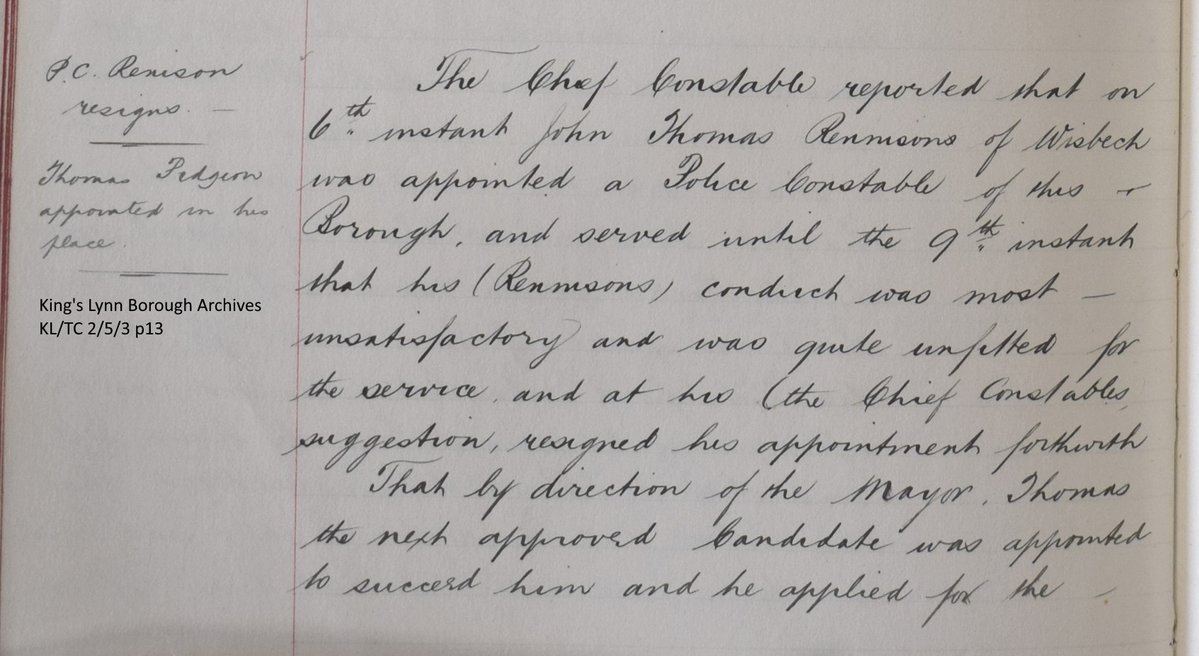 P.C. Renison
resigns. —
Thomas Pidgeon
appointed in his
place.
King's Lynn Borough Archives
KL/TC 2/5/3 p13
The Chief Constable reported that on
6th instant John Thomas Rennisons of Wisbech
was appointed a Police Constable of this —
Borough, and served until the 9th instant
that his (Rennisons) conduct was most —
unsatisfactory and was quite unfitted for
the service, and at his (the Chief Constables,
suggestion, resigned his appointment forthwith
That by direction of the Mayor, Thomas
the next approved Candidate was appointed
to succeed him and he applied for the —